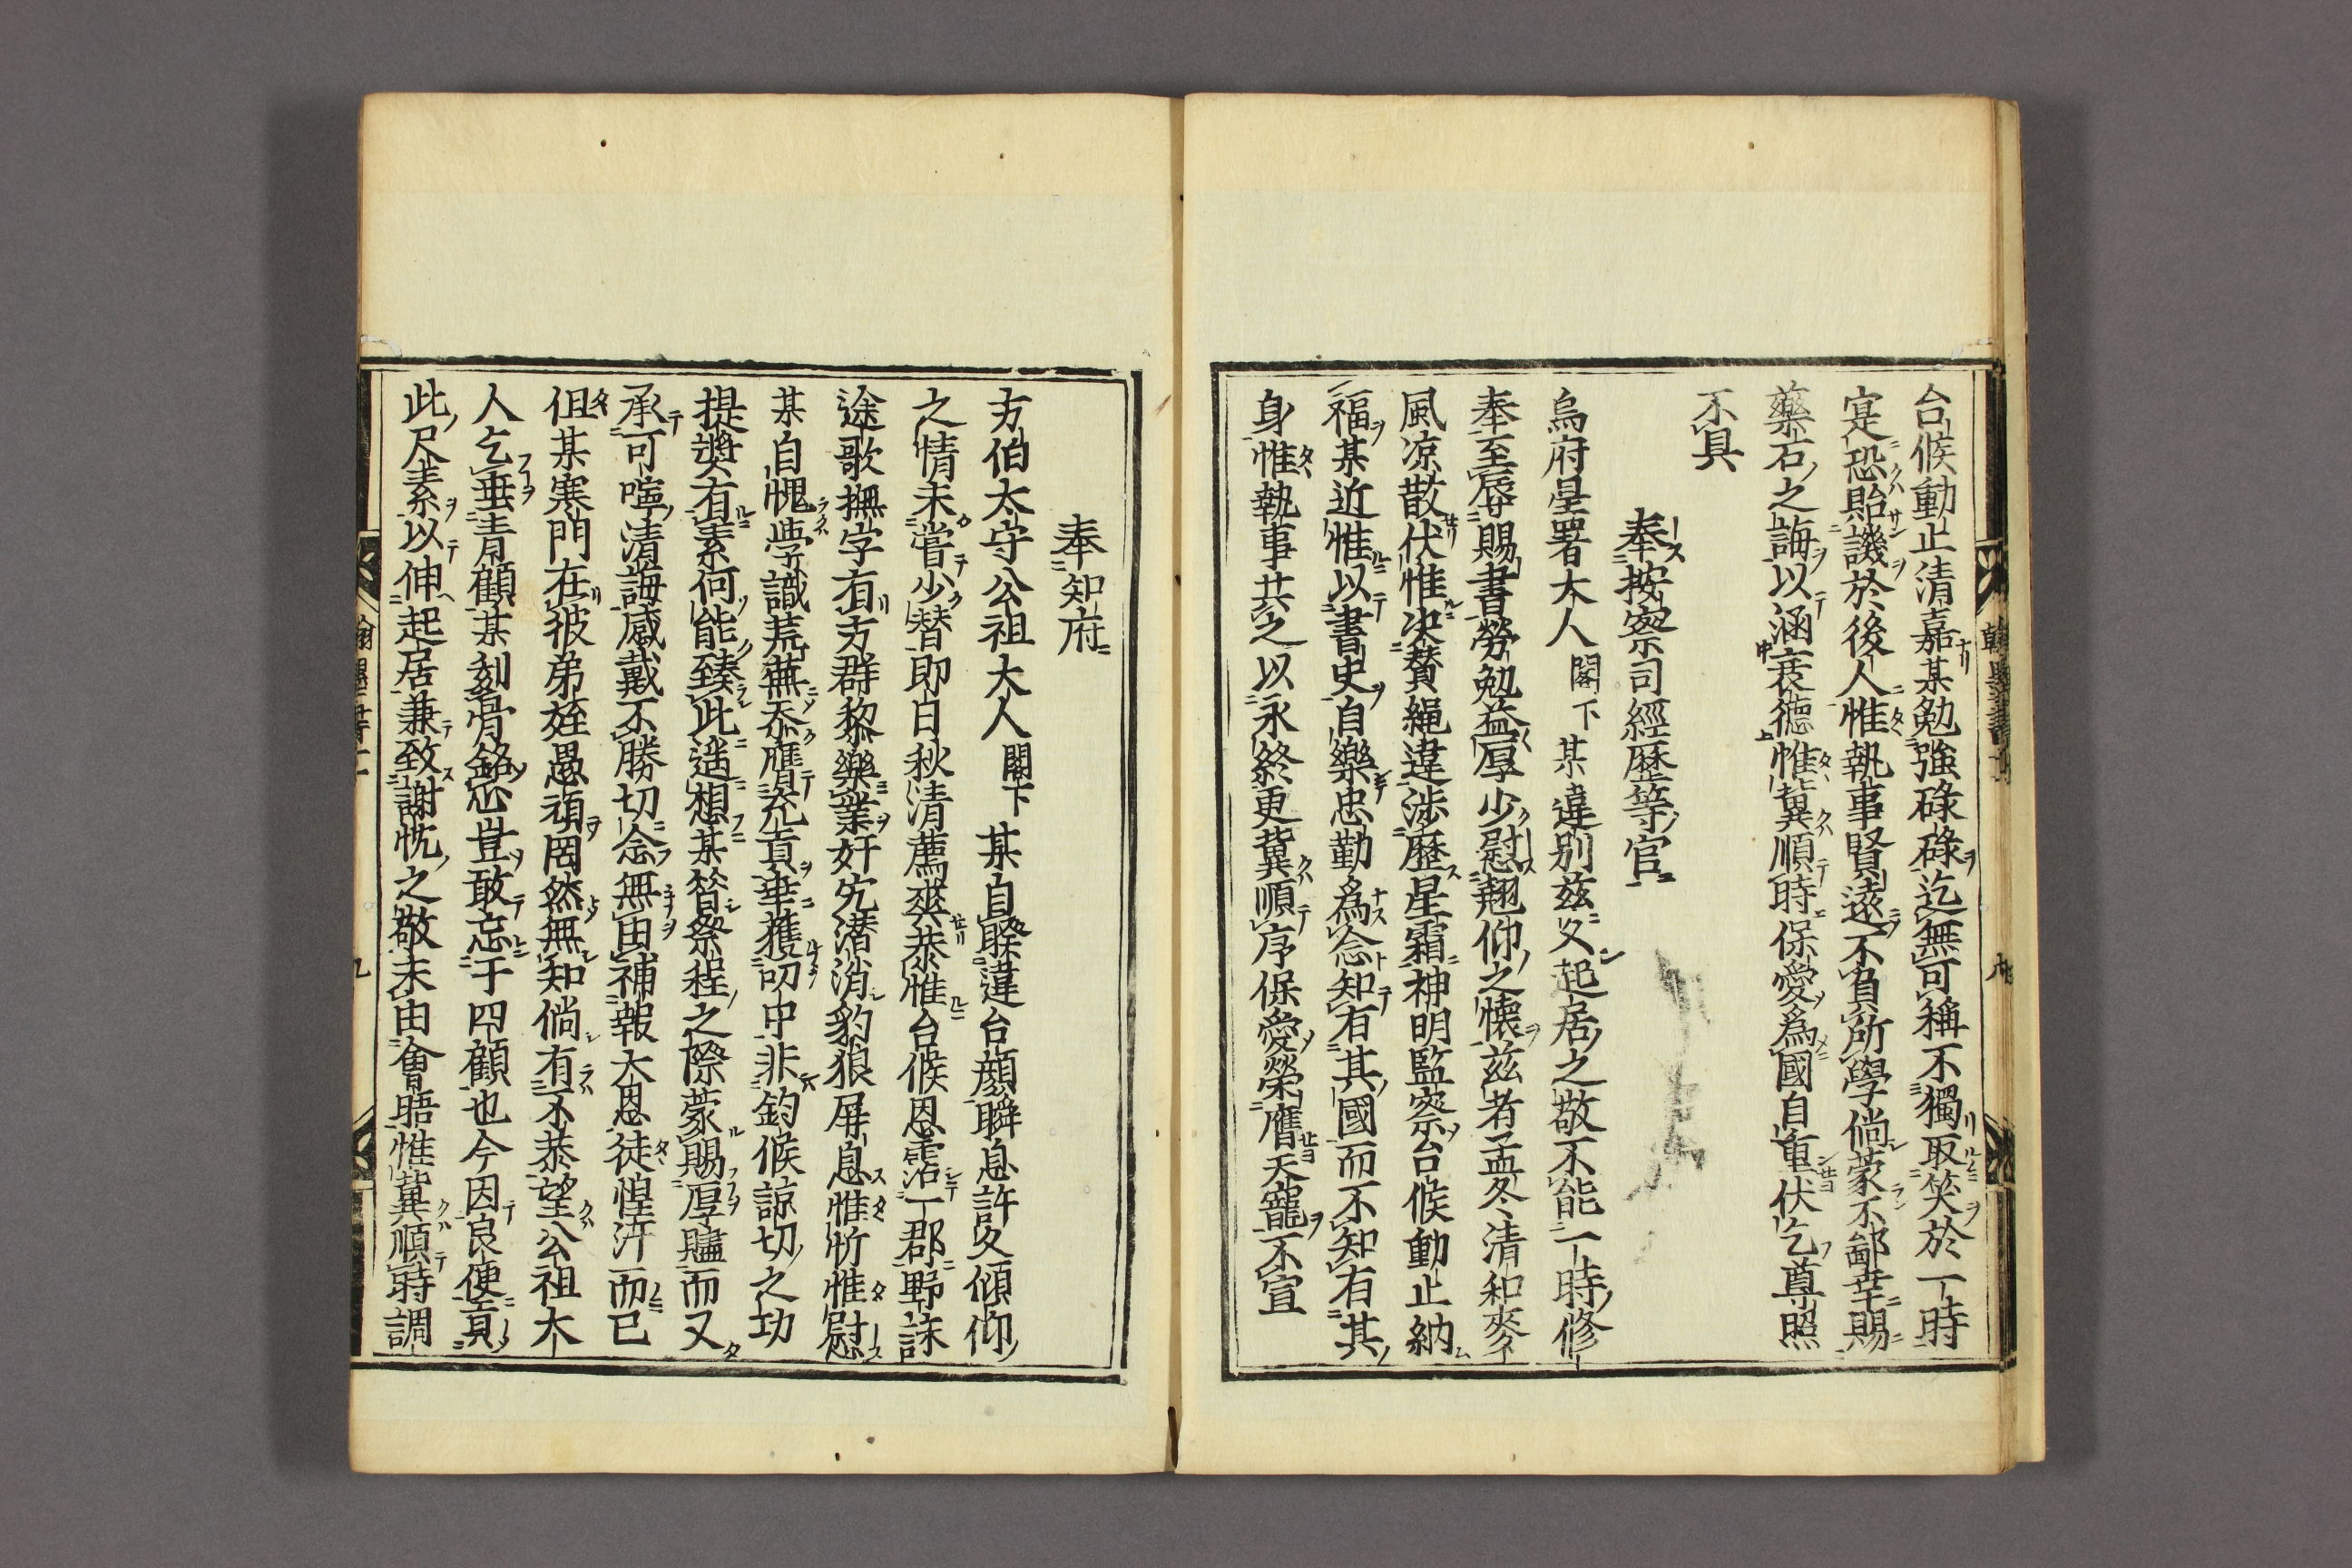 台候動止清嘉某勉強碌碌迄無可稱不獨取笑於一時
寔恐貽譏於後人惟執事賢遠不負所學倘蒙不鄙幸賜
藥石之誨以涵衰德惟冀順時保愛為國自重伏乞尊照
不具
奉按察司經歴等官
烏府星署大人閣下某違別茲久起居之敬不能一時修
奉至辱賜書勞勉益厚少慰翹仰之懷茲者孟冬清和麥
風凉散伏惟决賛繩違渉歷星霜神明監察台候動止納
福某近惟以書史自樂忠勤為念知有其國而不知有其
身惟執事共之以永終更冀順序保愛榮膺天寵不宣
奉知府
方伯太守公祖大人閣下某自睽違台顔瞬息許久傾仰
之情未嘗少替即白秋清薦爽恭惟台候恩霑一郡野誦
途歌撫字有方群黎樂業奸宄潜消豹狼屏息惟忻惟慰
某自愧學識荒蕪忝膺充貢幸獲叨中非鈞候諒切之功
提奬有素何能臻此遥想某筮祭程之際蒙賜厚贐而又
承可嚀清誨感戴不勝切念無由補報大恩徒惶汗而已
但某寒門在彼弟姪愚頑罔然無知倘有不恭望公祖大
人乞垂青顧某刻骨銘心豈敢忘于四顧也今因良便貢
此尺素以伸起居兼致謝忱之敬未由會晤惟冀順時調